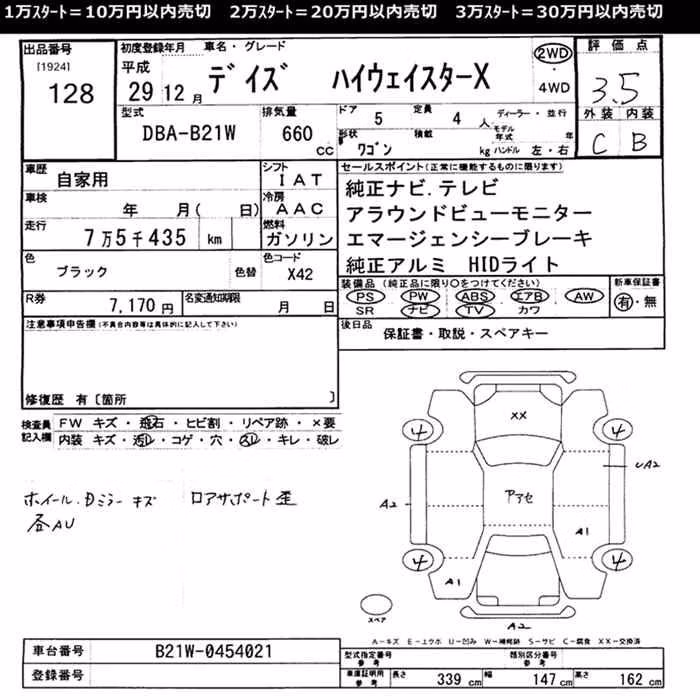 1万ｽﾀｰﾄ＝10万円以内売切　2万ｽﾀｰﾄ＝20万円以内売切　3万ｽﾀｰﾄ＝30万円以内売切
出品番号
[1924]
128
初度登録年月　車名・グレード
平成
29 12 月
デイズ　ハイウェイスターX
2WD
4WD
評価点
3.5
外装　内装
C　B
型式
DBA-B21W
排気量
660 cc
ドア 5　定員 4 人　ディーラー・並行
形状 ワゴン　積載 kg　モデル年式 年
ハンドル 左・右
車歴　自家用
シフト　IAT
車検　年　月(　日)
冷房　AAC
走行　7万5千435 km
燃料　ガソリン
色　ブラック　色替
色コード　X42
R券　7,170円　名変通知期限　月　日
セールスポイント(正常に機能するものに限ります)
純正ナビ.テレビ
アラウンドビューモニター
エマージェンシーブレーキ
純正アルミ　HIDライト
装備品(純正品に限り○をつけてください)　新車保証書
PS　PW　ABS　エアB　AW　有・無
SR　ナビ　TV　カワ
後日品　保証書・取説・スペアキー
注意事項申告欄(不具合内容等は具体的に記入して下さい)
修復歴　有〔箇所　〕
検査員記入欄
FW　キズ・飛石・ヒビ割・リペア跡・×要
内装　キズ・汚レ・コゲ・穴・スレ・キレ・破レ
ホイール.Dミラーキズ
各AU
ロアサポート歪
XX
4
4
UA2
A2
Pアセ
A1
4
4
A1
スペア
A2
A－キズ　E－エクボ　U－凹み　W－補修跡　S－サビ　C－腐食　XX－交換済
車台番号　B21W-0454021
登録番号
型式指定番号 参考　類別区分番号 参考
車庫証明用 参考　長さ 339 cm　幅 147 cm　高さ 162 cm